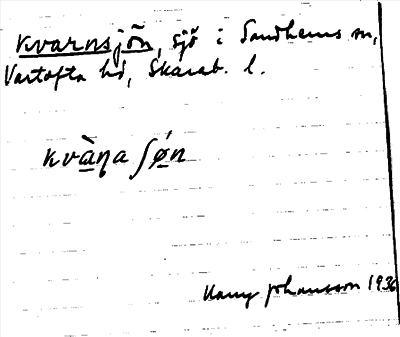 Kvarnsjön, sjö i Sandhems sn,
Vartofta hd, Skarab. l.
kvàn̥a ʃǿn
Harry Johansson 1936